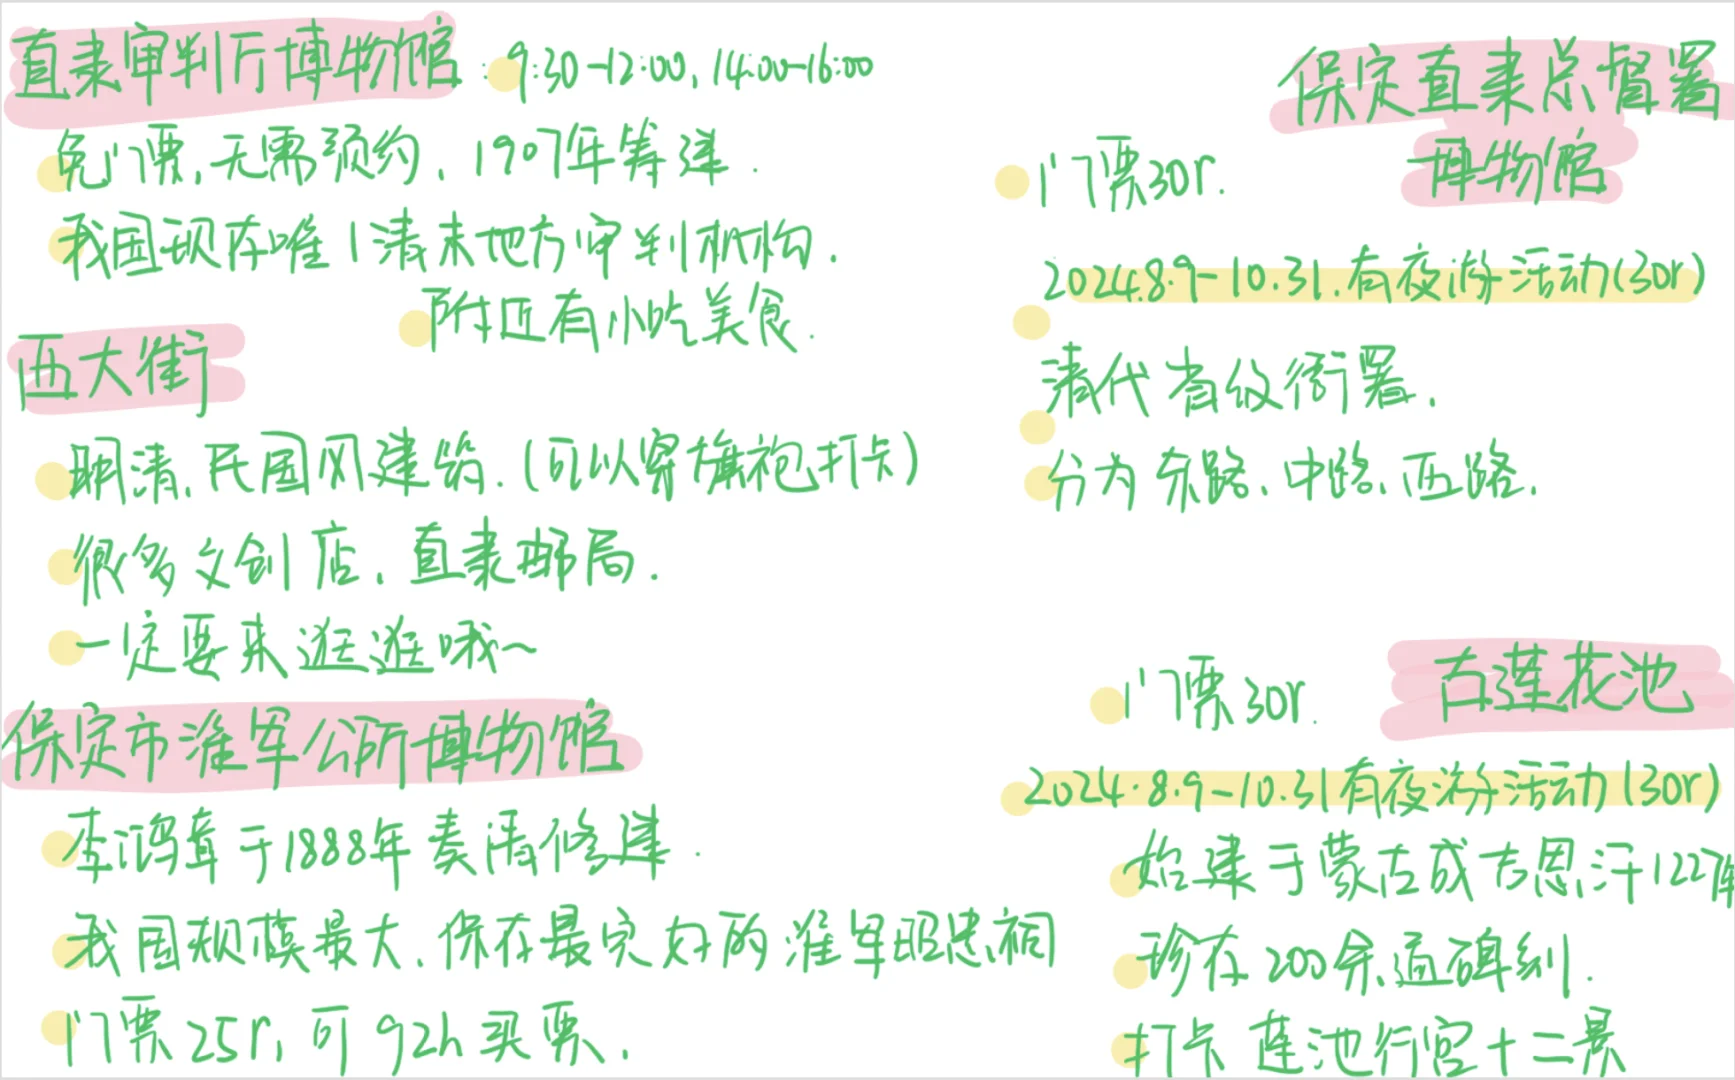 直隶审判厅博物馆：9:30-12:00, 14:00-16:00
免门票,无需预约, 1907年筹建.
我国现存唯1清末地方审判机构.
附近有小吃美食.
西大街
明清、民国风建筑.(可以穿旗袍打卡)
很多文创店,直隶邮局.
一定要来逛逛哦~
保定市淮军公所博物馆
李鸿章于1888年奏请修建.
我国规模最大、保存最完好的淮军昭忠祠
门票25r,可92h买票.
保定直隶总督署
博物馆
门票30r.
2024.8.9-10.31.有夜游活动(30r)
清代省级衙署.
分为东路、中路、西路.
古莲花池
门票30r.
2024.8.9-10.31有夜游活动(30r)
始建于蒙古成吉思汗1227年
珍存200余通碑刻.
打卡莲池行宫十二景